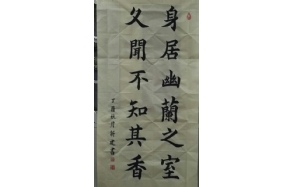 身居幽蘭之室
久聞不知其香